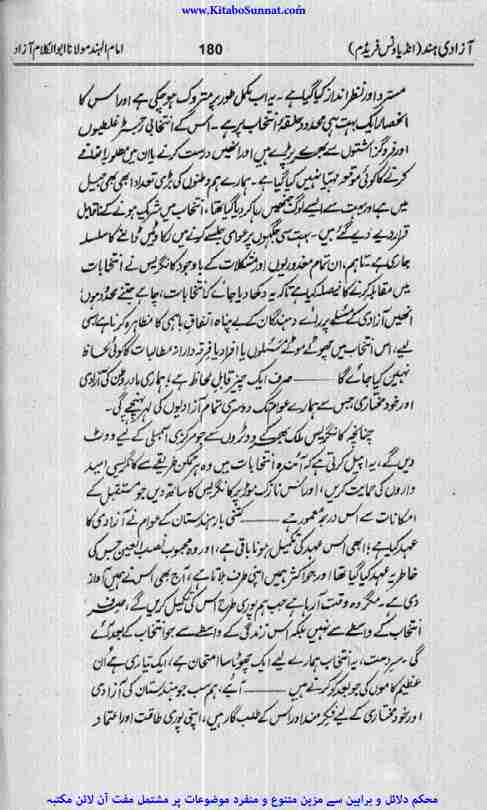 www.KitaboSunnat.com
آزادی ہند (انڈیا ونس فریڈم) 180 امام الہند مولانا ابوالکلام آزاد
مسترد اور نظر انداز کیا گیا ہے۔ یہ اب مکمل طور پر متروک ہو چکی ہے اور اس کا
انحصار ایک بہت ہی محدود حلقۂ انتخاب پر ہے۔ اس کے انتخابی رجسٹر غلطیوں
اور فروگزاشتوں سے بھرے پڑے ہیں اور انھیں درست کرنے یا ان میں مطلوبہ اضافے
کرنے کا کوئی موقعہ مہیا نہیں کیا گیا ہے۔ ہمارے ہم وطنوں کی بڑی تعداد ابھی بھی جیل
میں ہے اور بہت سے ایسے لوگ جنھیں رہا کر دیا گیا تھا، انتخاب میں شریک ہونے کے ناقابل
قرار دیے دیے گئے ہیں۔ بہت سی جگہوں پر عوامی جلسے کرنے میں رکاوٹیں ڈالنے کا سلسلہ
جاری ہے۔ تاہم، ان تمام معذوریوں اور مشکلات کے باوجود کانگریس نے انتخابات
میں مقابلہ کرنے کا فیصلہ کیا ہے تاکہ یہ دکھا دیا جائے کہ انتخابات، چاہے جتنے محدود ہوں
انھیں آزادی کے مسئلے پر رائے دہندگان کے بے پناہ اتفاق باہمی کا مظاہرہ کرنا ہے اسی
لیے، اس انتخاب میں چھوٹے موٹے مسئلوں یا افراد یا فرقہ دارانہ مطالبات کا کوئی لحاظ
نہیں کیا جائے گا ——— صرف ایک چیز قابل لحاظ ہے؛ ہماری مادر وطن کی آزادی
اور خود مختاری جس سے ہمارے عوام تک دوسری تمام آزادیوں کی لہر پہنچے گی۔
چنانچہ کانگریس ملک بھر کے ووٹروں سے جو مرکزی اسمبلی کے لیے ووٹ
دیں گے، یہ اپیل کرتی ہے کہ آئندہ انتخابات میں وہ ہر ممکن طریقے سے کانگریسی امید
داروں کی حمایت کریں، اور اس نازک موڑ پر کانگریس کا ساتھ دیں جو مستقبل کے
امکانات سے اس درجہ معمور ہے ——— کتنی بار ہندستان کے عوام نے آزادی کا
عہد کیا ہے؛ ابھی اس عہد کی تکمیل ہونا باقی ہے، اور وہ محبوب نصب العین جس کی
خاطر یہ عہد کیا گیا تھا اور جو اکثر ہمیں اپنی طرف بلاتا ہے، آج بھی اس نے ہمیں آواز
دی ہے۔ مگر وہ وقت آ رہا ہے جب ہم پوری طرح اس کی تکمیل کریں گے، صرف
انتخاب کے واسطے سے نہیں بلکہ اس زندگی کے واسطے سے جو انتخاب کے بعد آئے
گی۔ سر دست، یہ انتخاب ہمارے لیے ایک چھوٹا سا امتحان ہے، ایک تیاری ہے اُن
عظیم کاموں کی جو بعد کو کرنے ہیں ——— آیئے، ہم سب جو ہندستان کی آزادی
اور خود مختاری کے لیے فکر مند اور اس کے طلب گار ہیں، اپنی پوری طاقت اور اعتماد
محکم دلائل و براہین سے مزین متنوع و منفرد موضوعات پر مشتمل مفت آن لائن مکتبہ